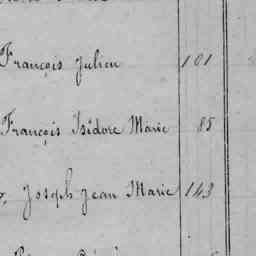 François Julien 101
François Isidore Marie 85
Joseph Jean Marie 143